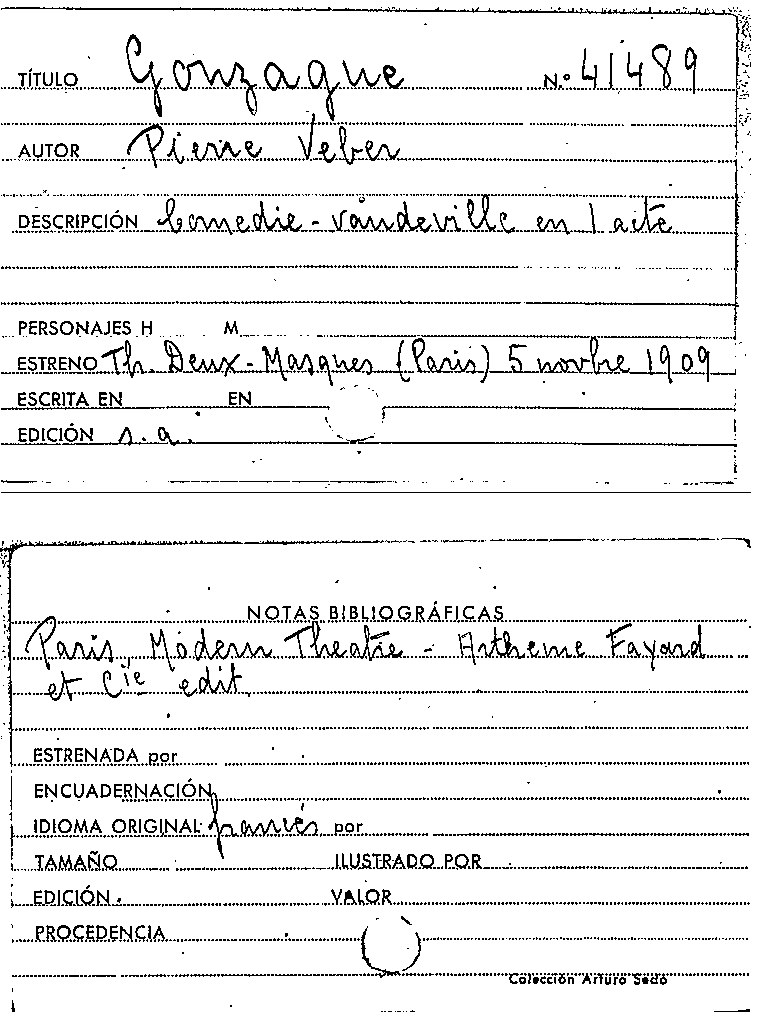 TÍTULO Gonzague N.º 41489
AUTOR Pierre Veber
DESCRIPCIÓN Comedie-vaudeville en 1 acte
PERSONAJES H M
ESTRENO Th. Deux-Masques (Paris) 5 novbre 1909
ESCRITA EN EN
EDICIÓN s.a.
NOTAS BIBLIOGRÁFICAS
Paris, Modern Theatre - Artheme Fayard
et Cie edit.
ESTRENADA por
ENCUADERNACIÓN
IDIOMA ORIGINAL francés por
TAMAÑO ILUSTRADO POR
EDICIÓN VALOR
PROCEDENCIA
Colección Arturo Sedó